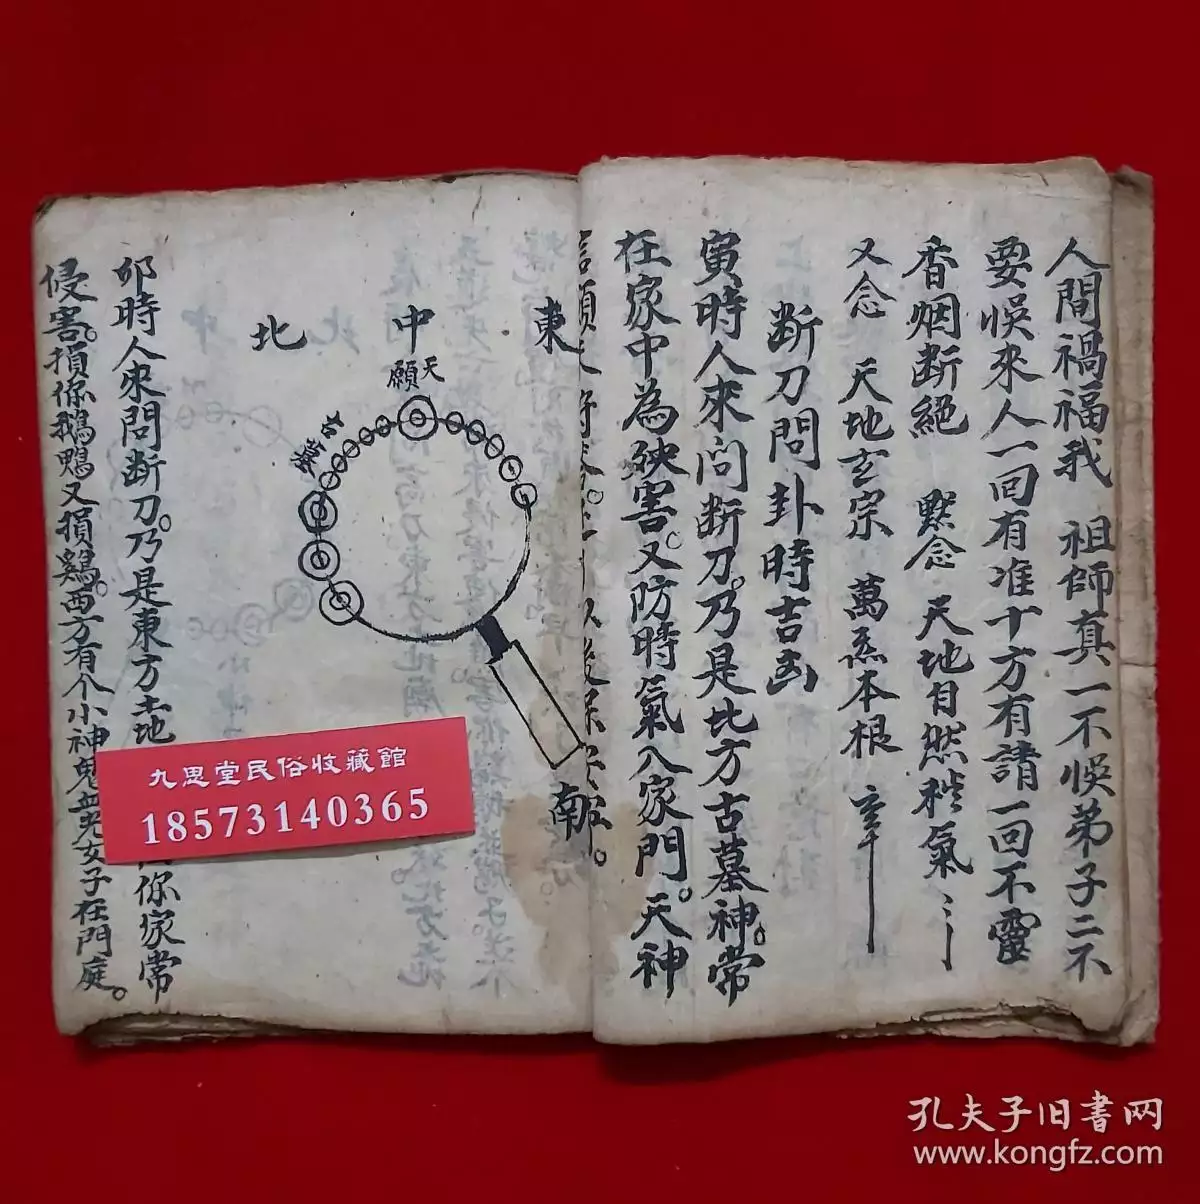 人間禍福我 祖師真一不悞弟子二不
要悞來人一回有准十方有請一回不靈
香烟断絕 默念 天地自然 氣
又念 天地玄宗 萬炁本根
断刀問卦時吉凶
寅時人來问断刀。乃是北方古墓神。常
在家中為殃害。又防時氣入家門。天神
東
中
北
南
天
願
古墓
卯時人來問断刀。乃是東方土地 你家常
侵害。損你鵝鴨又損鷄。西方有个小神鬼 女子在門庭。
九思堂民俗收藏館
18573140365
孔夫子旧書网
www.kongfz.com